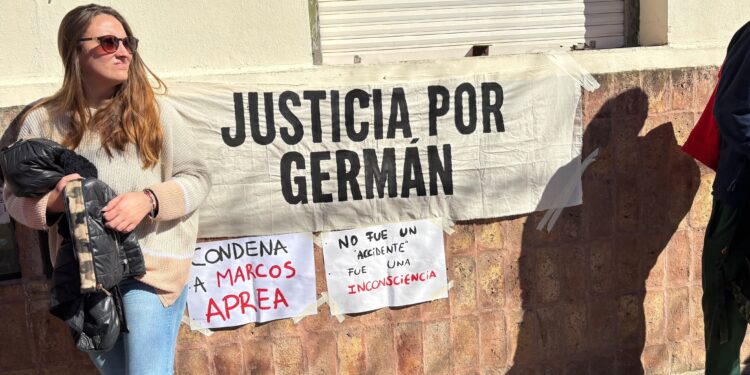 JUSTICIA POR
GERMÁN
CONDENA
A MARCOS
APREA
NO FUE UN
"ACCIDENTE"
FUE UNA
INCONSCIENCIA